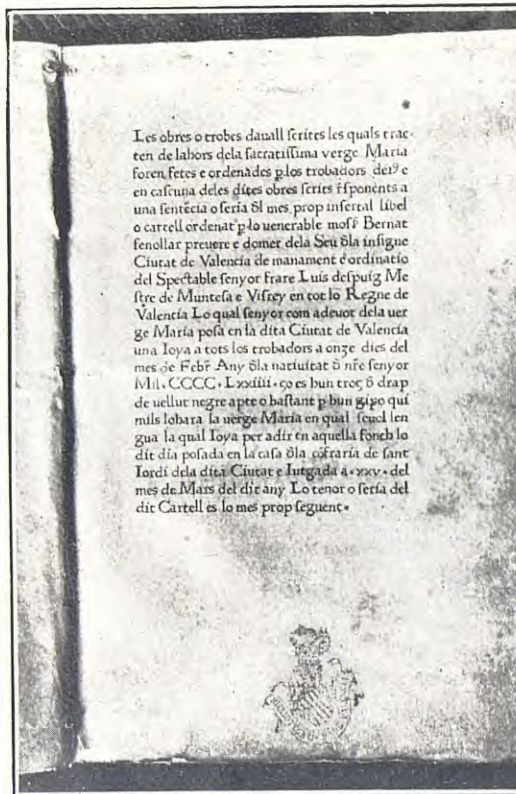 Les obres o trobes dauall scrites les quals trac-
ten de lahors dela sacratissima verge Maria
foren fetes e ordenades ꝑlos trobadors deiꝰ e
en cascuna deles dites obres scrits r̃sponents a
una sentẽcia o seria ðl mes prop insertat libel
o cartell ordenat ꝑlo uenerable mosſ̃ Bernat
fenollar preuere e domer dela Seu ðla insigne
Ciutat de Valencia de manament e ordinatio
del Spectable senyor frare Luis despuig Me
stre de Muntesa e Visrey en tot lo Regne de
Valencia Lo qual senyor com adeuot dela uer
ge Maria posa en la dita Ciutat de Valencia
una Ioya a tots los trobadors a onze dies del
mes de Febr̃ Any ðla natiuitat ð nr̃e senyor
Mil.CCCC.Lxxiiii.ço es hun troç ð drap
de uellut negre apte o bastant ꝑ hun gipo qui
mils lohara la uerge Maria en qual seuol len
gua la qual Ioya per adir en aquella fonch lo
dit dia posada en la casa ðla cõfraria de sant
Iordi dela dita Ciutat e Iutgada a.xxv.del
mes de Mars del dit any Lo tenor o seria del
dit Cartell es lo mes prop seguent.